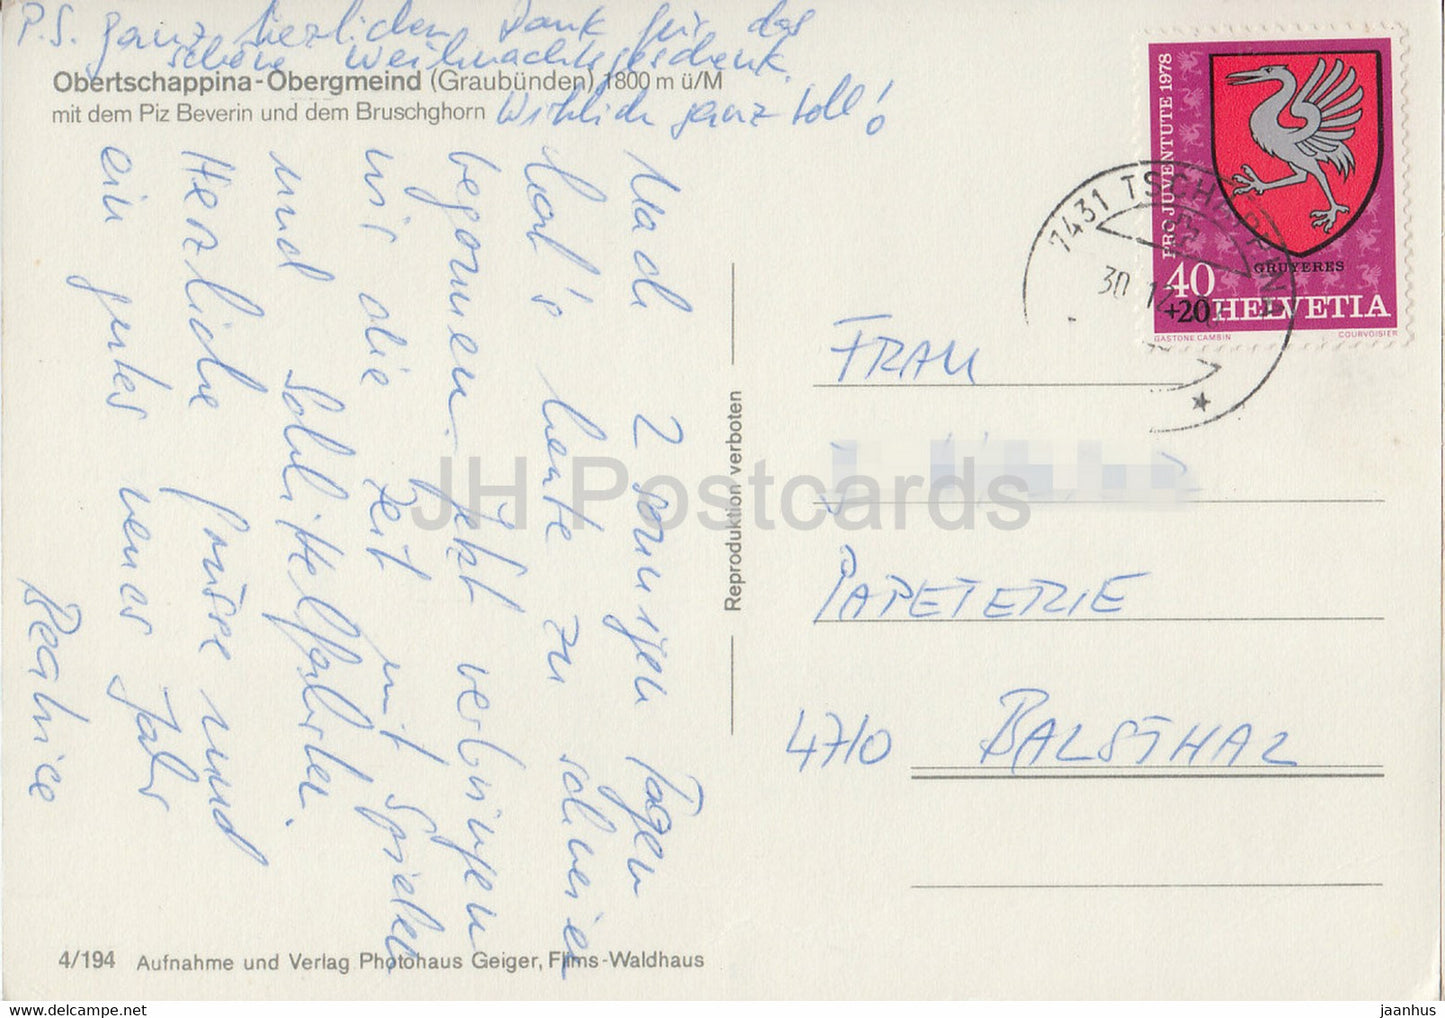 P.S. ganz herzlichen Dank für das
schöne Weihnachtsgeschenk.
Wirklich ganz toll!
Obertschappina-Obergmeind (Graubünden) 1800 m ü/M
mit dem Piz Beverin und dem Bruschghorn
Nach 2 sonnigen Tagen
hat's heute zu schneien
begonnen. Jetzt verbringen
wir die Zeit mit Spielen
und Schlittelfahrten.
Herzliche Grüsse und
ein gutes neues Jahr
Beatrice
4/194 Aufnahme und Verlag Photohaus Geiger, Flims-Waldhaus
Reproduktion verboten
PRO JUVENTUTE 1978
GRUYERES
40
+20 HELVETIA
GASTONE CAMBIN
COURVOISIER
7431 TSCHAPPINA
30.12
FRAU
PAPETERIE
4710 BALSTHAL
JH Postcards
jaanhus — www.delcampe.net